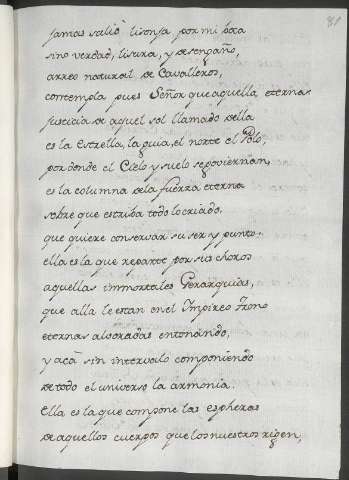 81
Jamas salio lisonja por mi boca
sino verdad, lisura, y desengaño,
arreo natural de Cavalleros,
contempla pues Señor que aquella eterna
justicia de aquel sol llamado della
es la estrella, la guia, el norte el Polo,
por donde el Cielo y suelo segoviernan,
es la columna dela fuerza eterna
sobre que estriba todo lo criado,
que quiere conservar su ser y punto.
ella es la que reparte por sus choros
aquellas immortales Gerarquias,
que alla le estan en el Impireo Trono
eternas alboradas entonando,
y acà sin intervalo componiendo
de todo el universo la armonia.
Ella es la que compone las espheras
de aquellos cuerpos que los nuestros rigen,